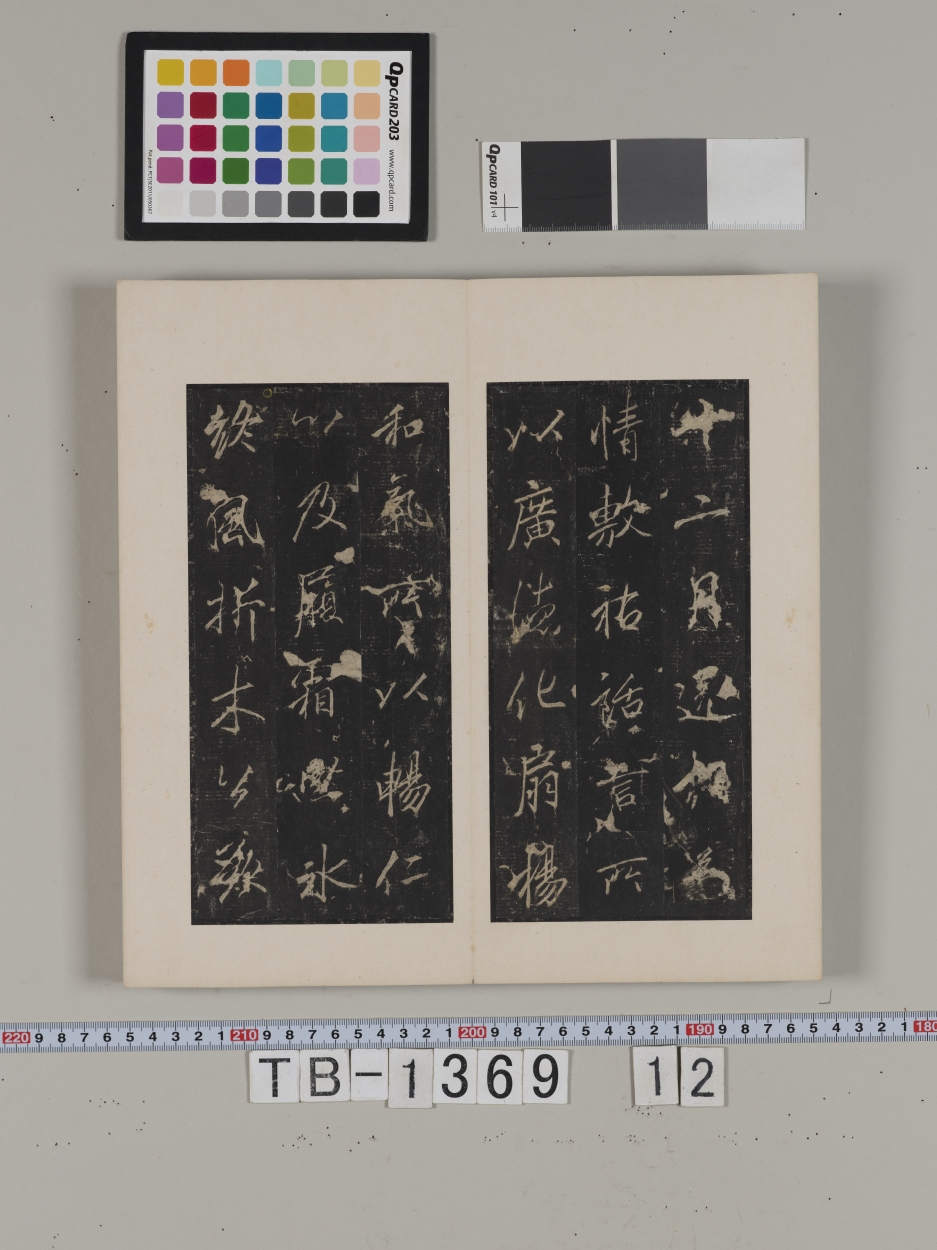 QPCARD 203 www.qpcard.com
QPCARD 101 v4
十二月
情敷祐話言所
以廣德化扇揚
和氣所以暢仁
以及履霜冰
終風折木
220 9 8 7 6 5 4 3 2 1 210 9 8 7 6 5 4 3 2 1 200 9 8 7 6 5 4 3 2 1 190 9 8 7 6 5 4 3 2 1 180
TB-1369 12